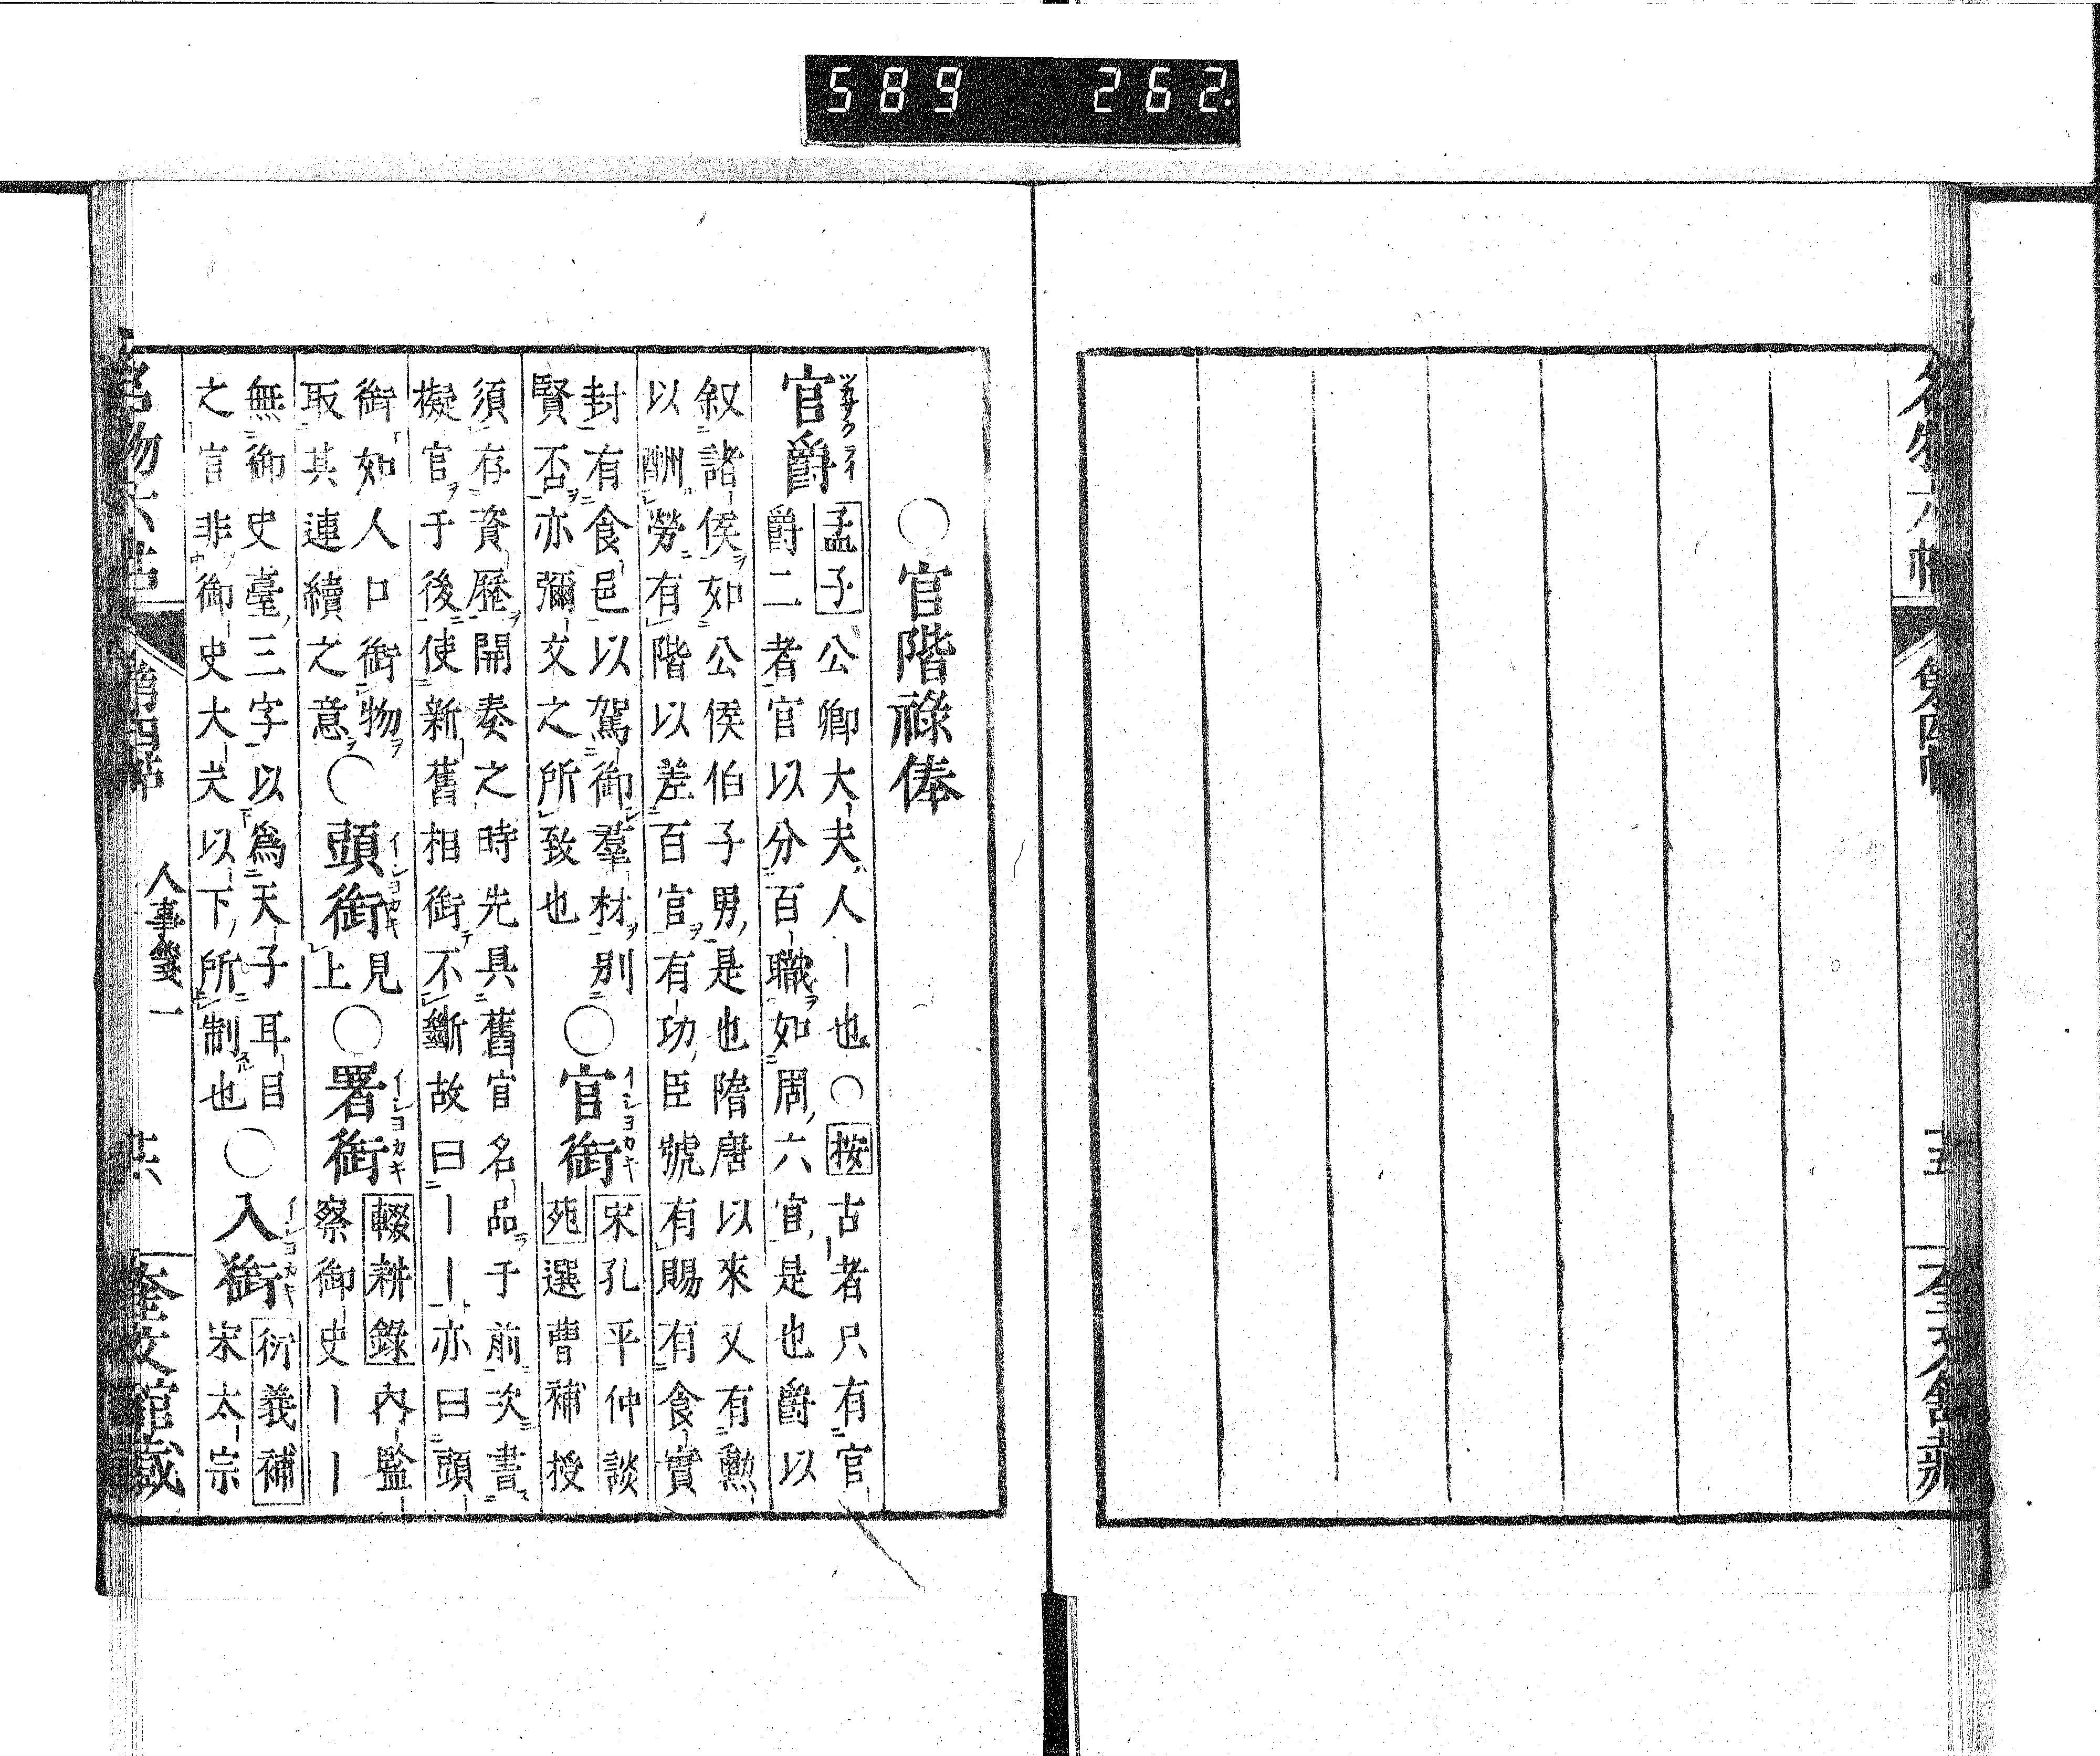 589 262.
名物六帖
第四帖
五
奎文館藏
○官階祿俸
官爵 孟子公卿大夫人｜也○按古者只有官
爵二者官以分百職如周六官是也爵以
叙諸侯如公侯伯子男是也隋唐以來又有勲
以酬勞有階以差百官有功臣號有賜有食實
封有食邑以駕御羣材別
賢否亦彌文之所致也
○官銜 イシヨカキ 宋孔平仲談
苑選曹補授
須存資歷開奏之時先具舊官名品于前次書
擬官于後使新舊相銜不斷故曰｜｜亦曰頭
銜如人口銜物
取其連續之意
○頭銜 イシヨカキ 見
上
○署銜 イシヨカキ 輟耕錄內監
察御史｜｜
無御史臺三字以為天子耳目
之官非御史大夫以下所制也
○入銜 イシヨカキ 衍義補
宋太宗
名物六帖
第四帖
人事箋一
奎文館藏